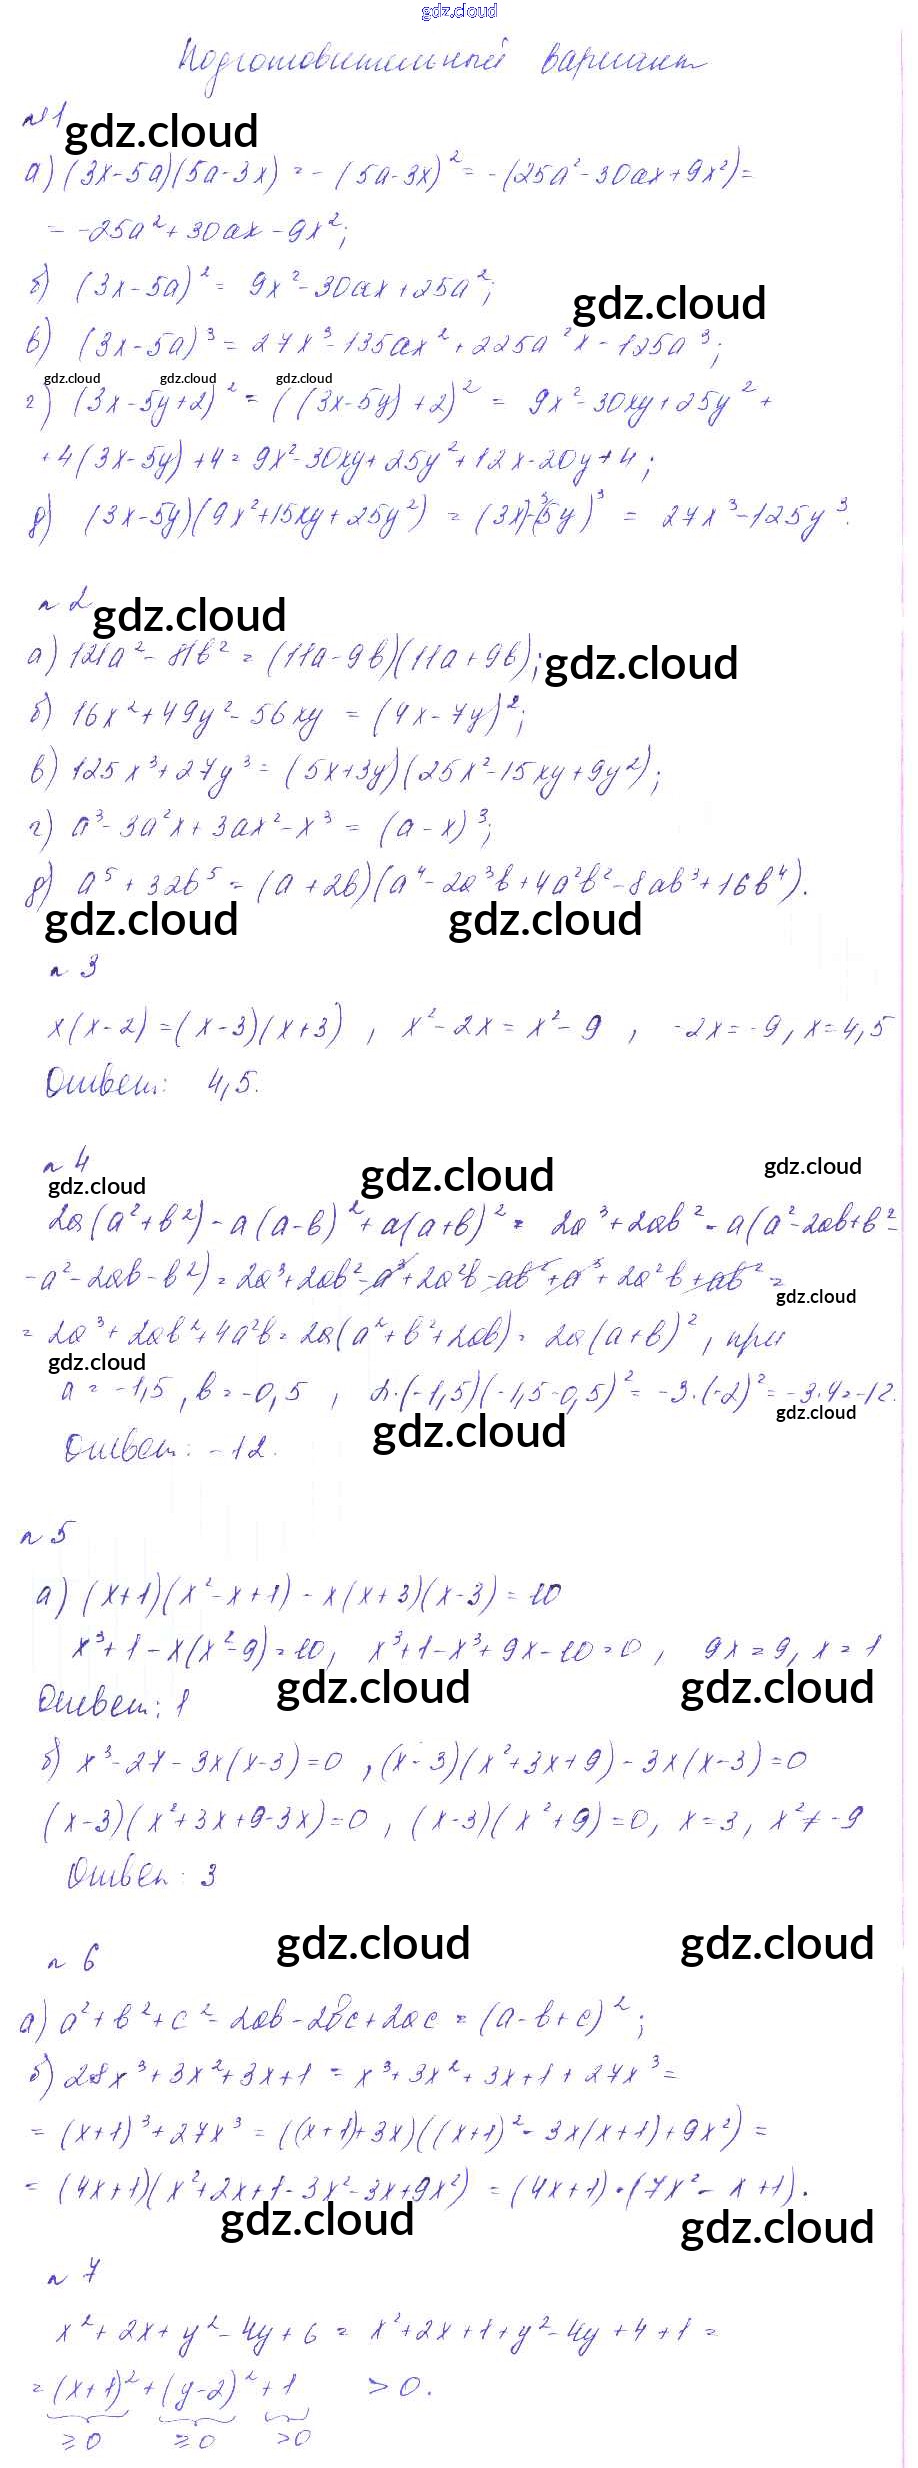 gdz.cloud
Подготовительный вариант
№1
gdz.cloud
а) (3x-5a)(5a-3x) = -(5a-3x)² = -(25a²-30ax+9x²)=
= -25a²+30ax-9x²;
б) (3x-5a)² = 9x²-30ax+25a²;
gdz.cloud
в) (3x-5a)³ = 27x³-135ax²+225a²x-125a³;
gdz.cloud gdz.cloud gdz.cloud
г) (3x-5y+2)² = ((3x-5y)+2)² = 9x²-30xy+25y²+
+4(3x-5y)+4 = 9x²-30xy+25y²+12x-20y+4;
д) (3x-5y)(9x²+15xy+25y²) = (3x)³-(5y)³ = 27x³-125y³.
№2
gdz.cloud
а) 121a²-81b² = (11a-9b)(11a+9b);
gdz.cloud
б) 16x²+49y²-56xy = (4x-7y)²;
в) 125x³+27y³ = (5x+3y)(25x²-15xy+9y²);
г) a³-3a²x+3ax²-x³ = (a-x)³;
д) a⁵+32b⁵ = (a+2b)(a⁴-2a³b+4a²b²-8ab³+16b⁴).
gdz.cloud gdz.cloud
№3
x(x-2)=(x-3)(x+3), x²-2x=x²-9, -2x=-9, x=4,5
Ответ: 4,5.
№4
gdz.cloud gdz.cloud gdz.cloud
2a(a²+b²)-a(a-b)²+a(a+b)² = 2a³+2ab²-a(a²-2ab+b²-
-a²-2ab-b²) = 2a³+2ab²-a³+2a²b-ab²+a³+2a²b+ab² =
gdz.cloud
= 2a³+2ab²+4a²b = 2a(a²+b²+2ab) = 2a(a+b)², при
gdz.cloud
a = -1,5, b = -0,5, 2·(-1,5)(-1,5-0,5)² = -3·(-2)² = -3·4=-12.
gdz.cloud
gdz.cloud
Ответ: -12.
№5
а) (x+1)(x²-x+1)-x(x+3)(x-3)=10
x³+1-x(x²-9)=10, x³+1-x³+9x-10=0, 9x=9, x=1
gdz.cloud gdz.cloud
Ответ: 1
б) x³-27-3x(x-3)=0, (x-3)(x²+3x+9)-3x(x-3)=0
(x-3)(x²+3x+9-3x)=0, (x-3)(x²+9)=0, x=3, x²≠-9
Ответ: 3
gdz.cloud gdz.cloud
№6
а) a²+b²+c²-2ab-2bc+2ac = (a-b+c)²;
б) 28x³+3x²+3x+1 = x³+3x²+3x+1+27x³=
= (x+1)³+27x³ = ((x+1)+3x)((x+1)²-3x(x+1)+9x²) =
= (4x+1)(x²+2x+1-3x²-3x+9x²) = (4x+1)·(7x²-x+1).
gdz.cloud gdz.cloud
№7
x²+2x+y²-4y+6 = x²+2x+1+y²-4y+4+1 =
= (x+1)²+(y-2)²+1 >0.
≥0 ≥0 >0